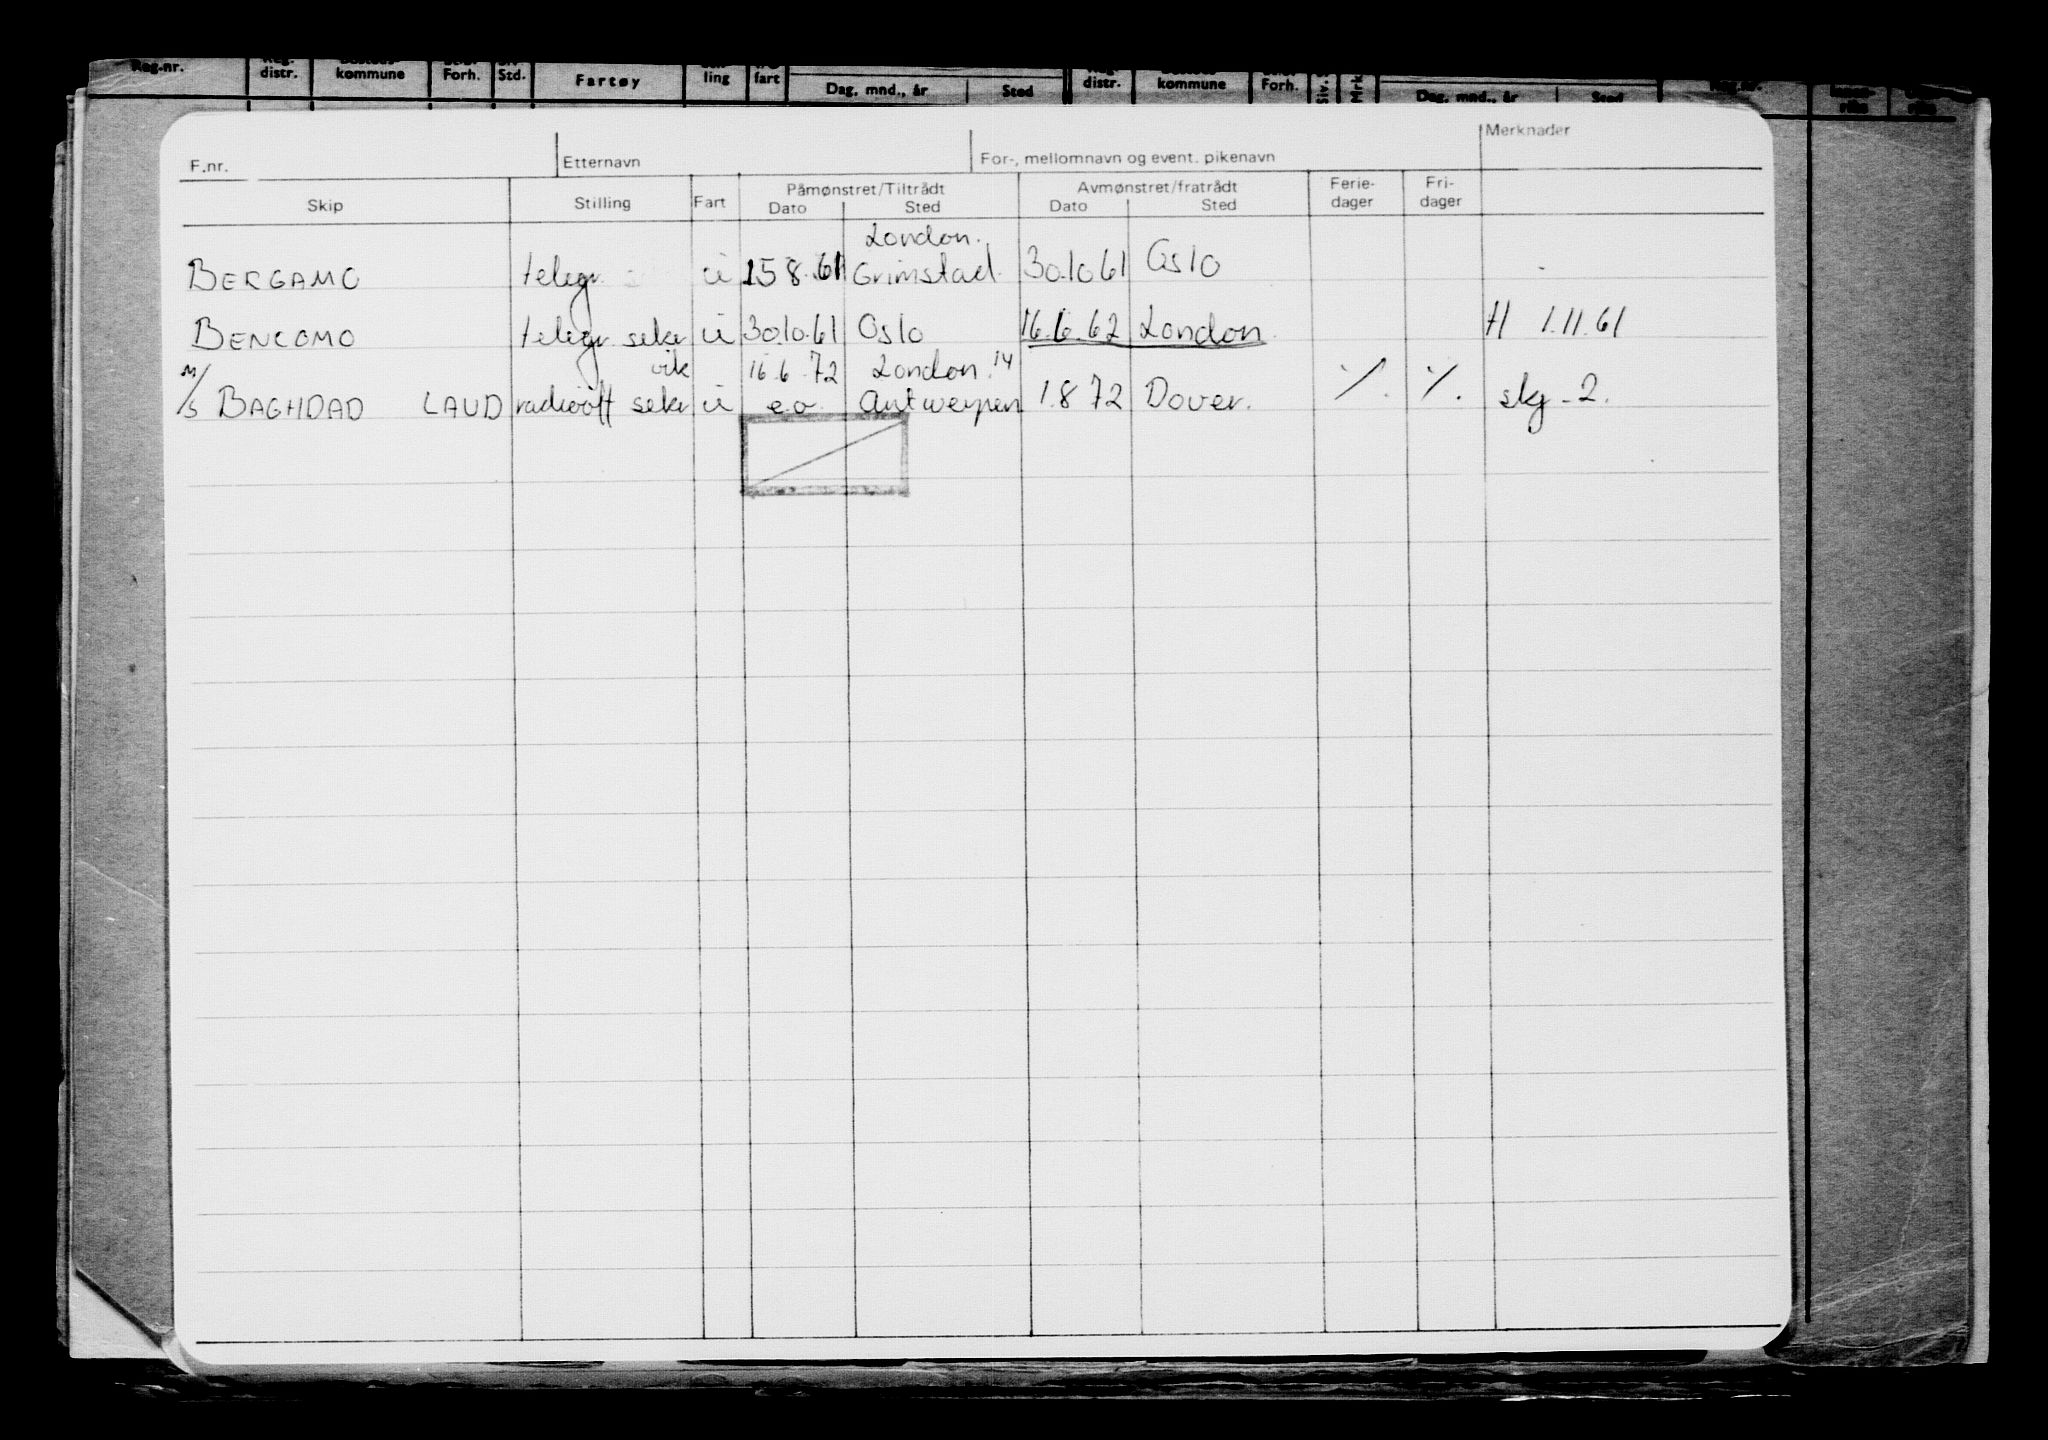 Reg.-nr. distr. kommune Forh. Std. Fartøy ling fart Dag, mnd., år Sted distr. kommune Forh. Dag, mnd., år Sted
F.nr. Etternavn For-, mellomnavn og event. pikenavn Merknader
Skip Stilling Fart Påmønstret/Tiltrådt Avmønstret/fratrådt Ferie-dager Fri-dager
Dato Sted Dato Sted
London.
BERGAMO telegr. u 15 8.61 Grimstad. 30.10 61 Oslo
BENCOMO telegr sekr u 30.10.61 Oslo 16.6.62 London. H 1.11.61
vik 16.6.72 London.14
M/S BAGHDAD LAUD radiooff sekr u e.o. Antwerpen 1.8 72 Dover. ·/. ·/. skg -2.